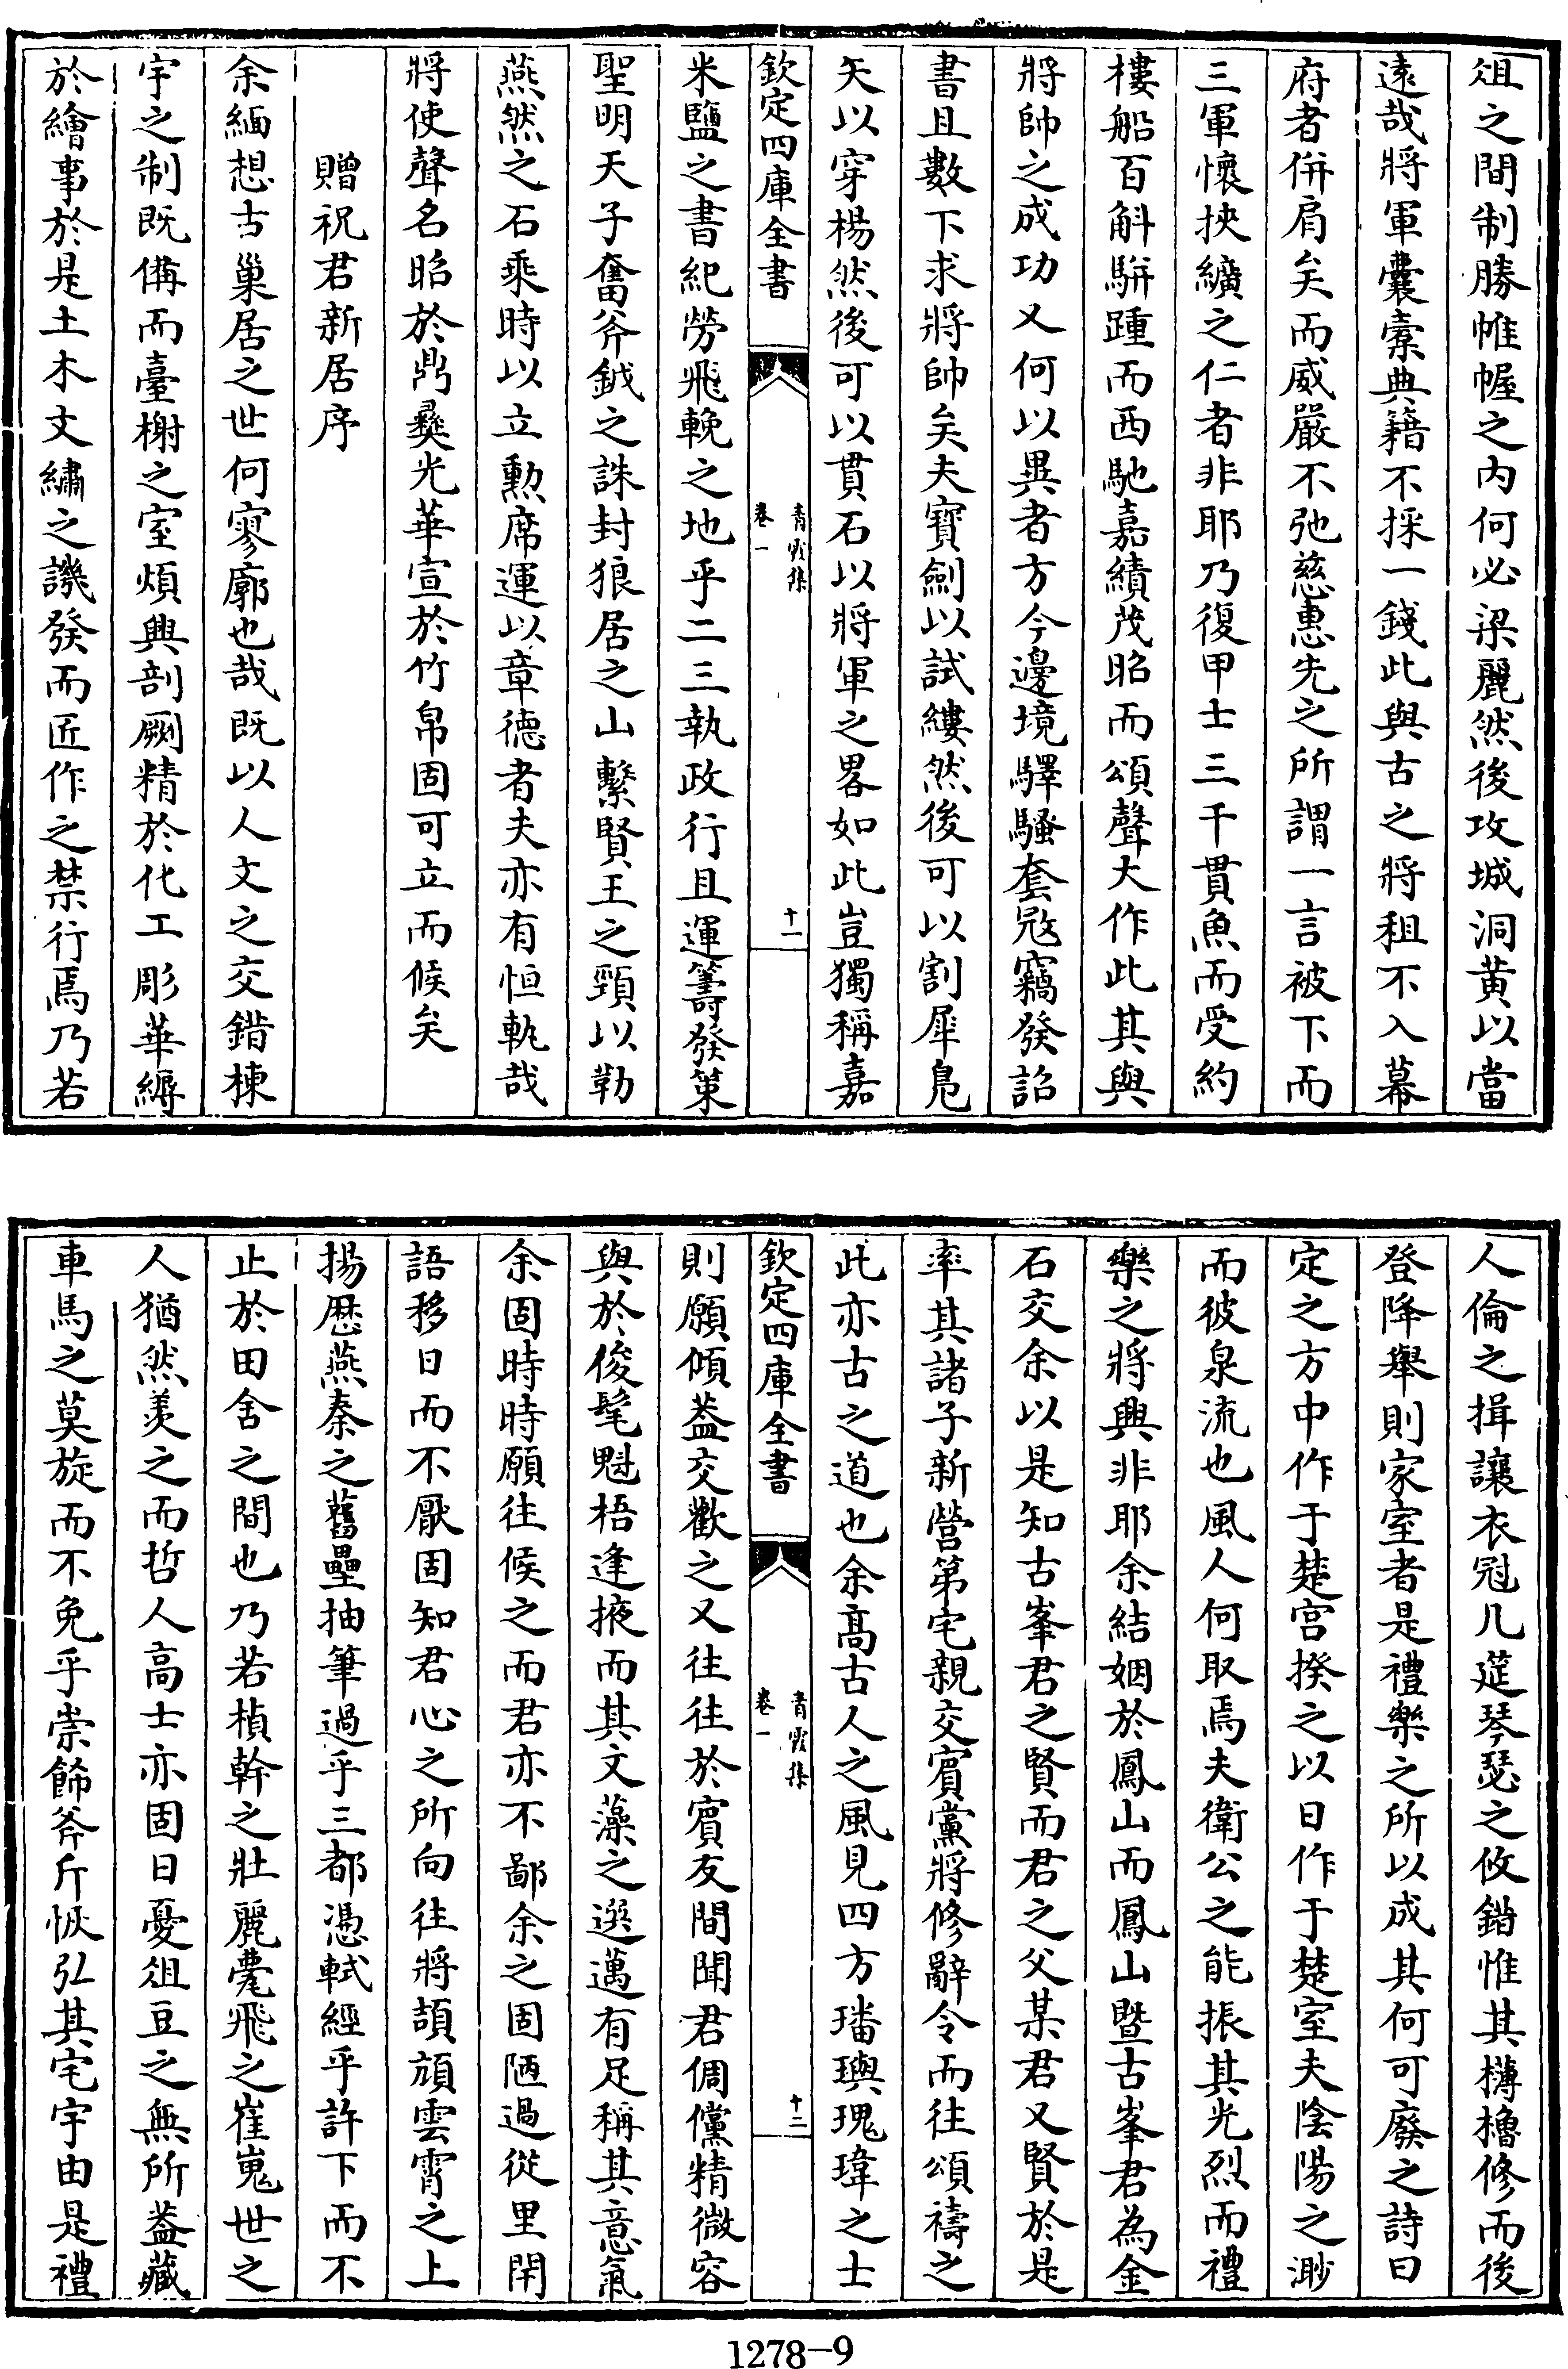 俎之間制勝帷幄之内何必梁麗然後攻城洞黄以當
遠哉將軍囊橐典籍不採一錢此與古之將租不入幕
府者併肩矣而威嚴不弛慈惠先之所謂一言被下而
三軍懷挾纊之仁者非耶乃復甲士三千貫魚而受約
樓船百斛駢踵而西馳嘉績茂昭而頌聲大作此其與
將帥之成功又何以異者方今邊境驛騷套冦竊發詔
書且數下求將帥矣夫寶劍以試縷然後可以割犀鳬
矢以穿楊然後可以貫石以將軍之畧如此豈獨稱嘉
欽定四庫全書
青霞集
卷一
十一
米鹽之書紀勞飛輓之地乎二三執政行且運籌發策
聖明天子奮斧鉞之誅封狼居之山繫賢王之頸以勒
燕然之石乘時以立勲席運以章德者夫亦有恒軌哉
將使聲名昭於鼎彝光華宣於竹帛固可立而候矣
贈祝君新居序
余緬想古巢居之世何寥廓也哉既以人文之交錯棟
宇之制既備而臺榭之室煩興剖劂精於化工彫華縟
於繪事於是土木文繡之譏發而匠作之禁行焉乃若
人倫之揖讓衣冠几筵琴瑟之攸錯惟其欂櫓修而後
登降舉則家室者是禮樂之所以成其何可廢之詩曰
定之方中作于楚宫揆之以日作于楚室夫陰陽之渺
而彼泉流也風人何取焉夫衛公之能振其光烈而禮
樂之將興非耶余結姻於鳳山而鳳山暨古峯君為金
石交余以是知古峯君之賢而君之父某君又賢於是
率其諸子新營第宅親交賓黨將修辭令而往頌禱之
此亦古之道也余髙古人之風見四方璠璵瑰瑋之士
欽定四庫全書
青霞集
卷一
十二
則願傾葢交歡之又往往於賓友間聞君倜儻精微容
與於俊髦魁梧逢掖而其文藻之選邁有足稱其意氣
余固時時願往候之而君亦不鄙余之固陋過從里閈
語移日而不厭固知君心之所向往將頡頏雲霄之上
揚歴燕秦之舊壘抽筆過乎三都憑軾經乎許下而不
止於田舍之間也乃若楨幹之壯麗翬飛之崔嵬世之
人猶然羨之而哲人高士亦固日憂俎豆之無所葢藏
車馬之莫旋而不免乎崇飾斧斤恢弘其宅宇由是禮
1278-9